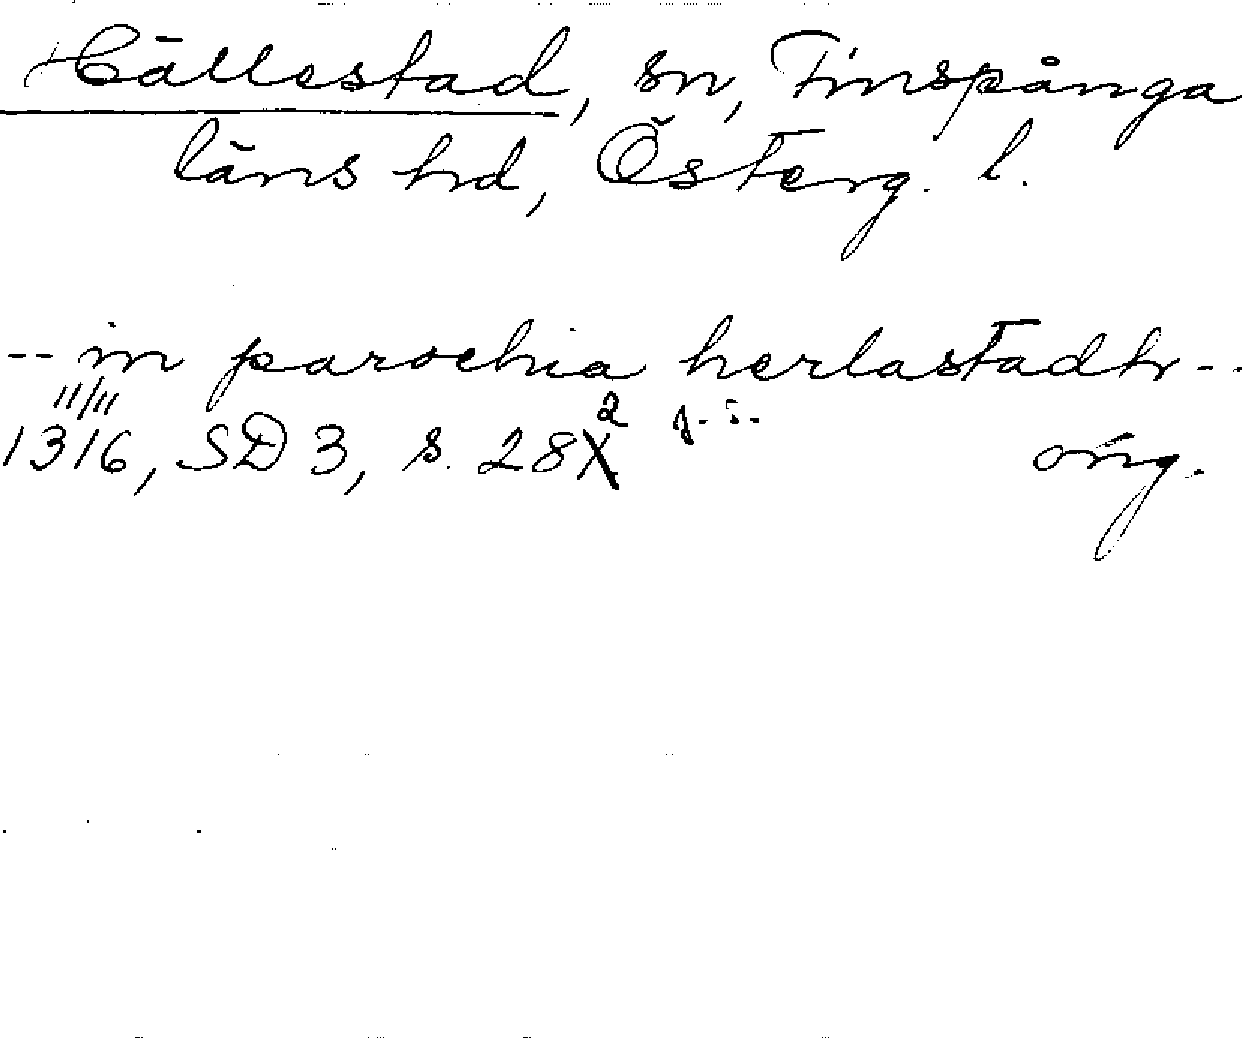 Hällestad, sn, Finspånga
läns hd, Österg. l.
-- in parochia herlastadhr --
11/11
1316, SD 3, s. 282
orig.